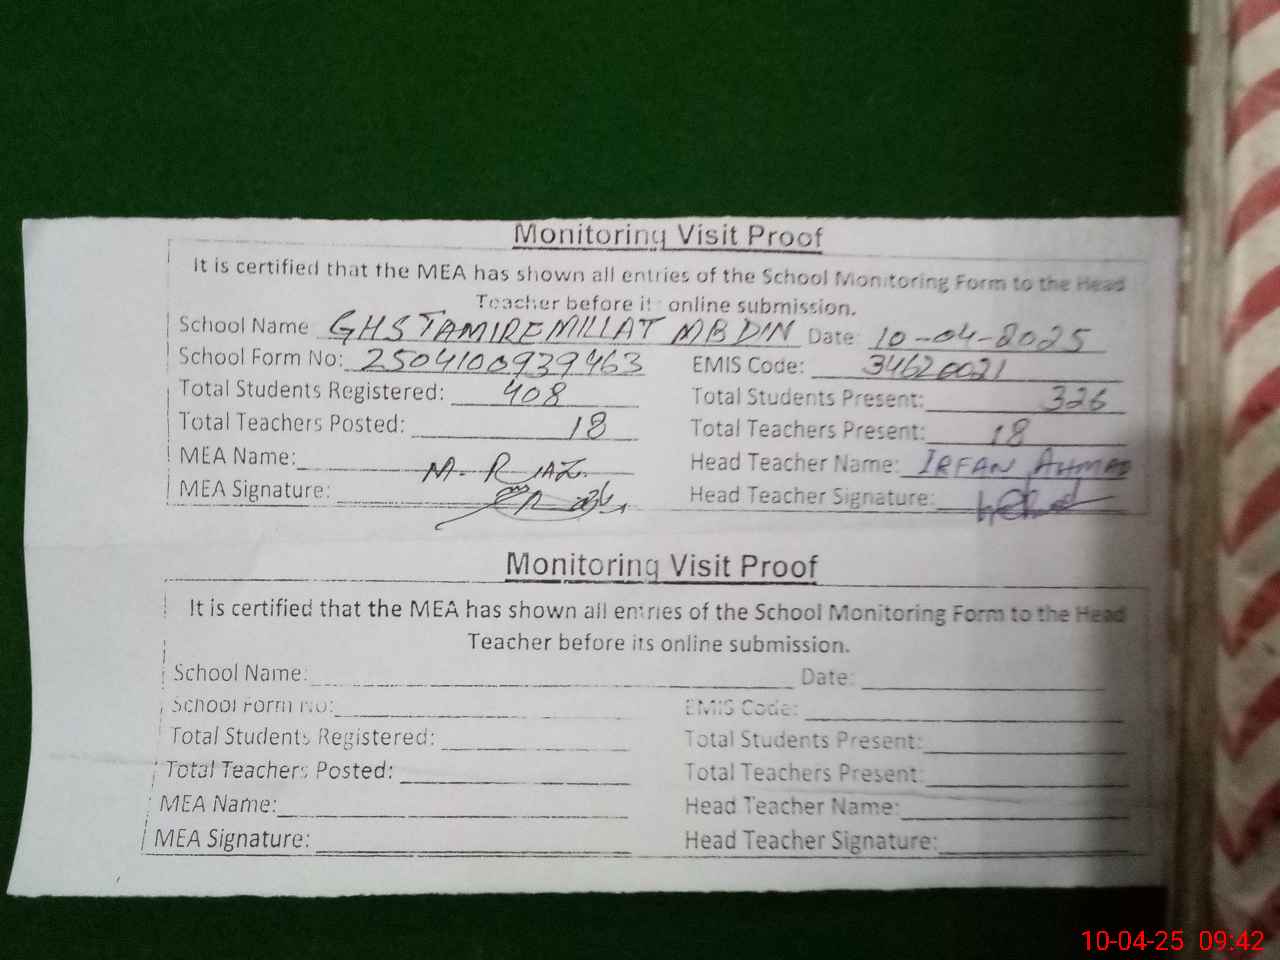 Monitoring Visit Proof
It is certified that the MEA has shown all entries of the School Monitoring Form to the Head
Teacher before its online submission.
School Name GHS TAMIREMILLAT MB DIN Date: 10-04-2025
School Form No: 2504100939463 EMIS Code: 34620021
Total Students Registered: 408 Total Students Present: 326
Total Teachers Posted: 18 Total Teachers Present: 18
MEA Name: M. RIAZ. Head Teacher Name: IRFAN AHMAD
MEA Signature: Head Teacher Signature:
Monitoring Visit Proof
It is certified that the MEA has shown all entries of the School Monitoring Form to the Head
Teacher before its online submission.
School Name: Date:
School Form No: EMIS Code:
Total Students Registered: Total Students Present:
Total Teachers Posted: Total Teachers Present:
MEA Name: Head Teacher Name:
MEA Signature: Head Teacher Signature:
10-04-25 09:42